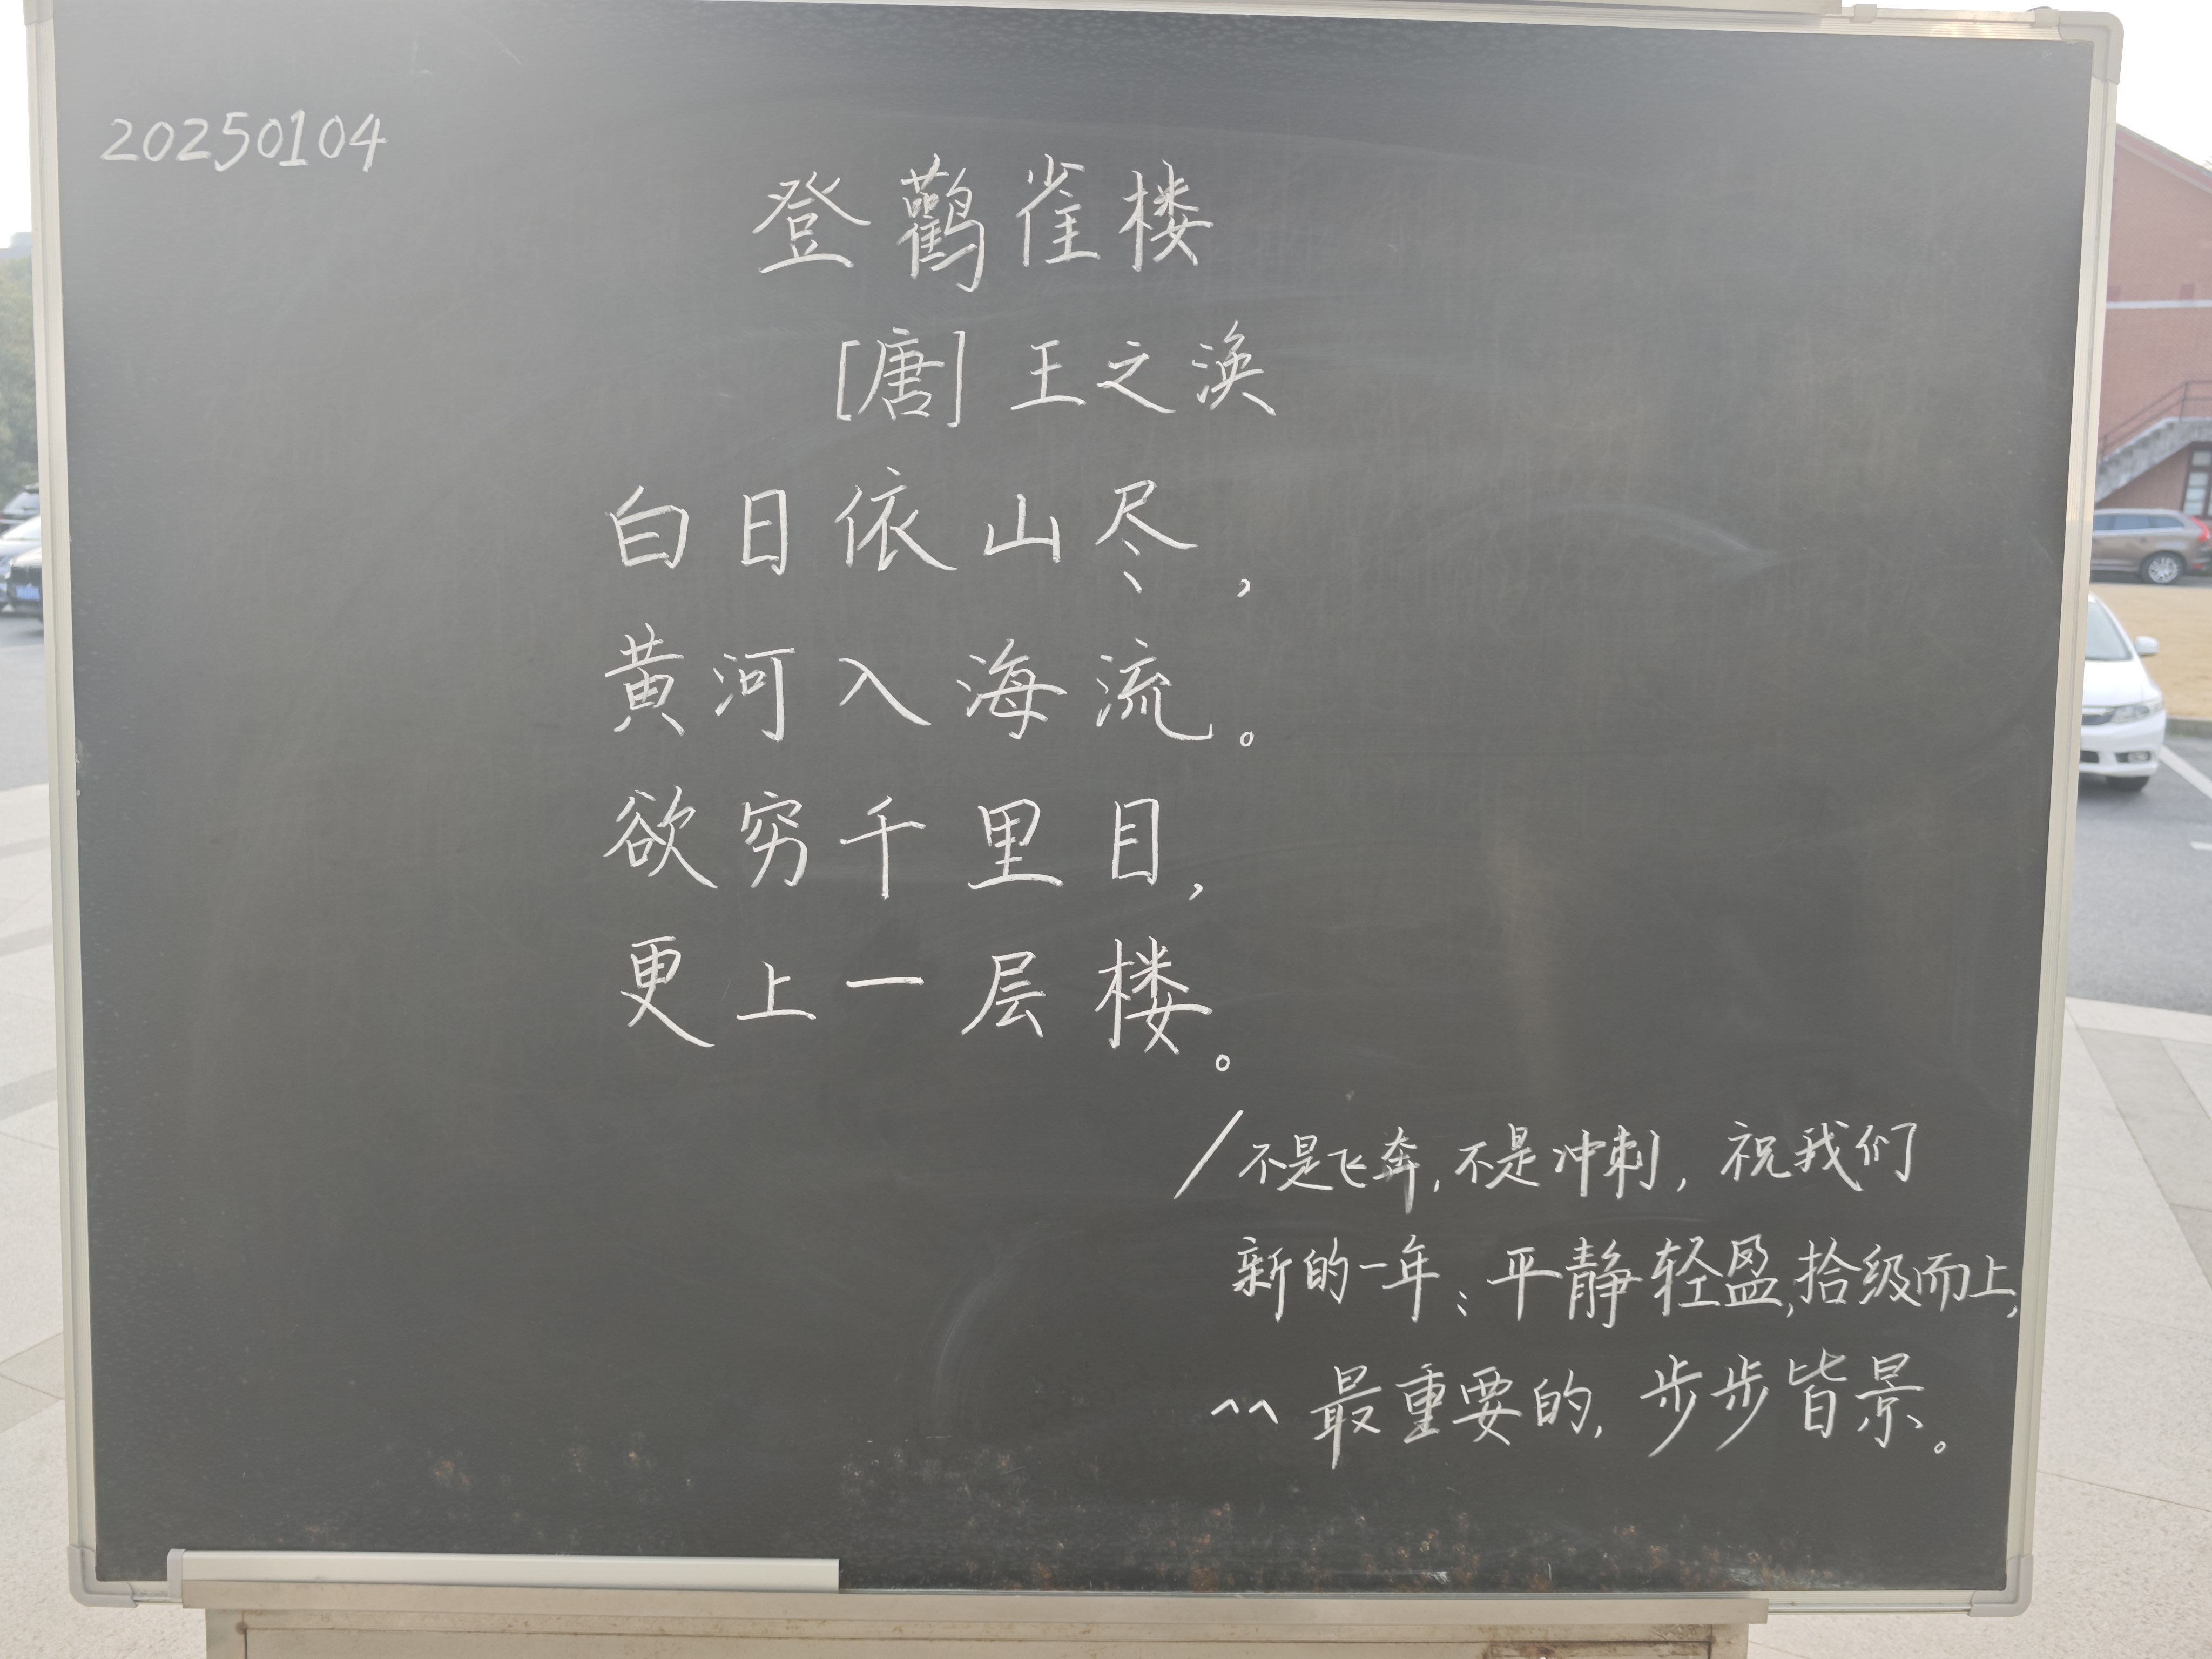 20250104
登鹳雀楼
[唐] 王之涣
白日依山尽，
黄河入海流。
欲穷千里目，
更上一层楼。
/不是飞奔，不是冲刺，祝我们
新的一年：平静轻盈，拾级而上，
^^ 最重要的，步步皆景。